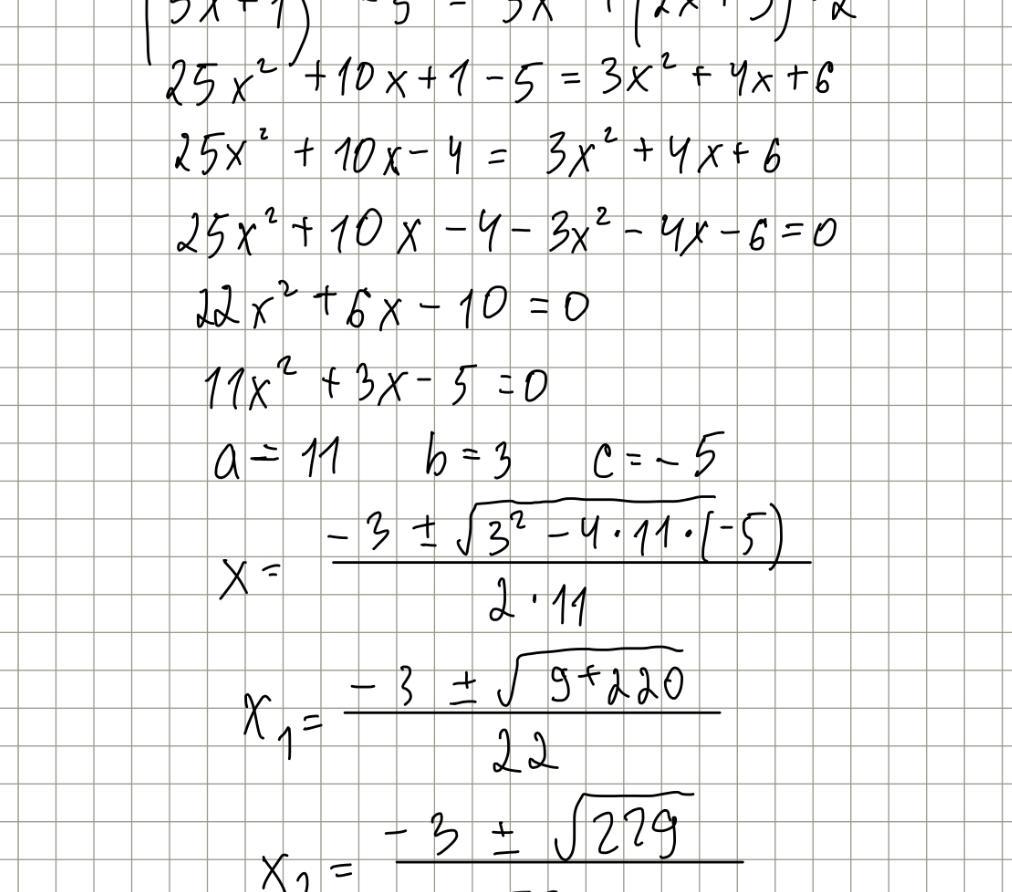 25x² + 10x + 1 - 5 = 3x² + 4x + 6
25x² + 10x - 4 = 3x² + 4x + 6
25x² + 10x - 4 - 3x² - 4x - 6 = 0
22x² + 6x - 10 = 0
11x² + 3x - 5 = 0
a = 11 b = 3 c = - 5
x = (- 3 ± √(3² - 4 · 11 · (-5))) / (2 · 11)
x₁ = (- 3 ± √(9 + 220)) / 22
x₂ = - 3 ± √229